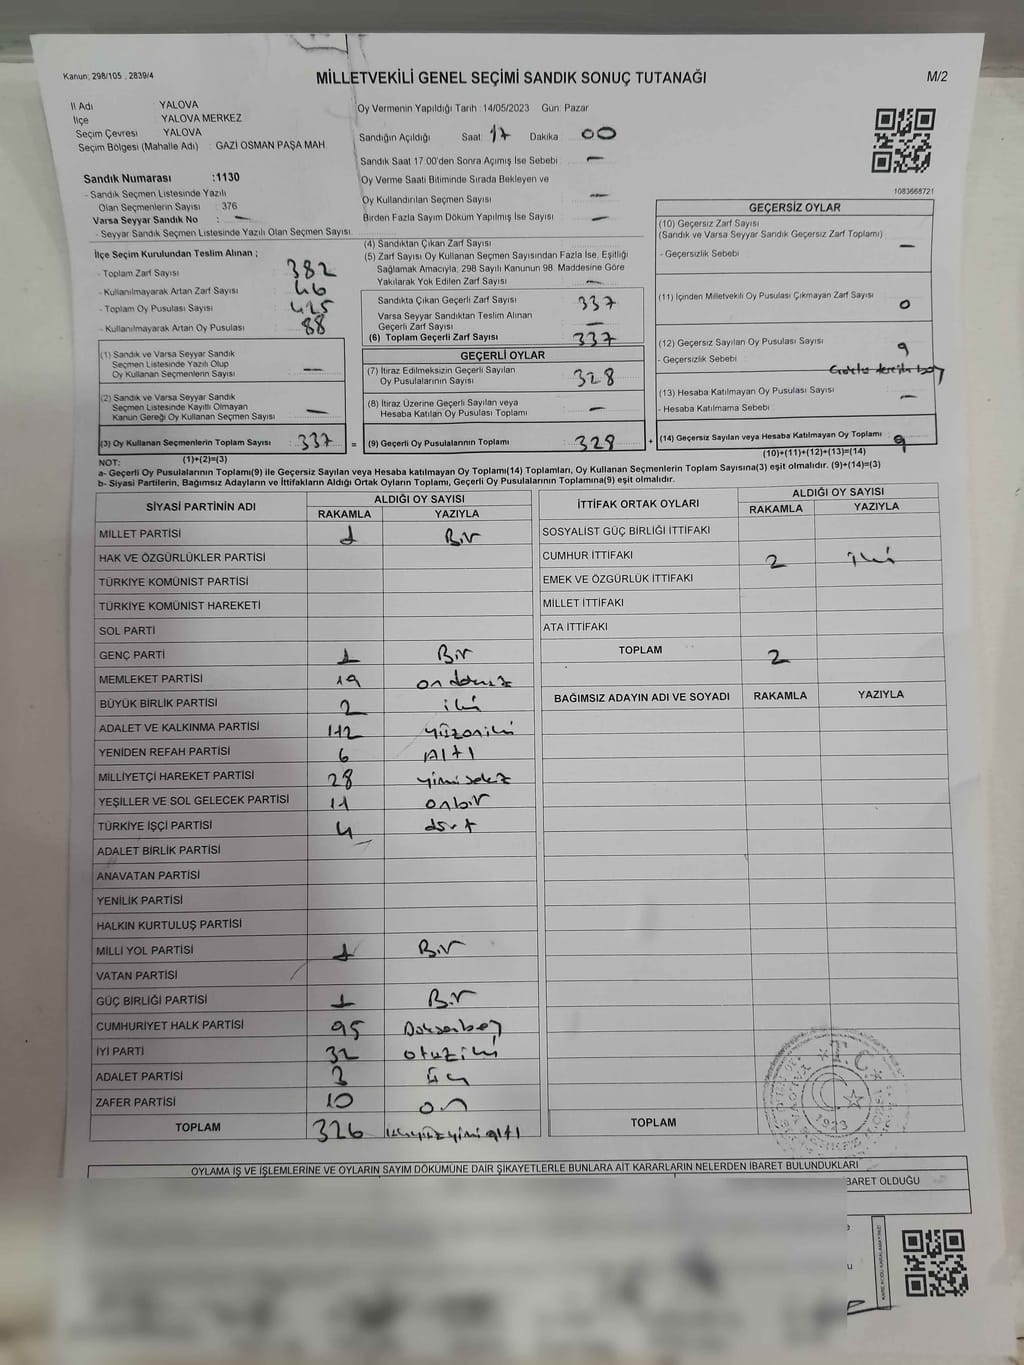 Kanun; 298/105 , 2839/4
MİLLETVEKİLİ GENEL SEÇİMİ SANDIK SONUÇ TUTANAĞI
M/2
İl Adı YALOVA
İlçe YALOVA MERKEZ
Seçim Çevresi YALOVA
Seçim Bölgesi (Mahalle Adı) : GAZİ OSMAN PAŞA MAH.
Sandık Numarası :1130
- Sandık Seçmen Listesinde Yazılı
Olan Seçmenlerin Sayısı : 376
Varsa Seyyar Sandık No : —
- Seyyar Sandık Seçmen Listesinde Yazılı Olan Seçmen Sayısı
Oy Vermenin Yapıldığı Tarih : 14/05/2023 Gün: Pazar
Sandığın Açıldığı Saat 17 Dakika 00
Sandık Saat 17.00'den Sonra Açımış İse Sebebi —
Oy Verme Saati Bitiminde Sırada Bekleyen ve
Oy Kullandırılan Seçmen Sayısı —
Birden Fazla Sayım Döküm Yapılmış İse Sayısı —
1083668721
İlçe Seçim Kurulundan Teslim Alınan ;
- Toplam Zarf Sayısı 382
- Kullanılmayarak Artan Zarf Sayısı 46
- Toplam Oy Pusulası Sayısı 425
- Kullanılmayarak Artan Oy Pusulası 88
(1) Sandık ve Varsa Seyyar Sandık
Seçmen Listesinde Yazılı Olup
Oy Kullanan Seçmenlerin Sayısı —
(2) Sandık ve Varsa Seyyar Sandık
Seçmen Listesinde Kayıtlı Olmayan
Kanun Gereği Oy Kullanan Seçmen Sayısı —
(3) Oy Kullanan Seçmenlerin Toplam Sayısı 337 =
(1)+(2)=(3)
(4) Sandıktan Çıkan Zarf Sayısı
(5) Zarf Sayısı Oy Kullanan Seçmen Sayısından Fazla İse, Eşitliği
Sağlamak Amacıyla; 298 Sayılı Kanunun 98. Maddesine Göre
Yakılarak Yok Edilen Zarf Sayısı —
Sandıkta Çıkan Geçerli Zarf Sayısı 337
Varsa Seyyar Sandıktan Teslim Alınan
Geçerli Zarf Sayısı —
(6) Toplam Geçerli Zarf Sayısı 337
GEÇERLİ OYLAR
(7) İtiraz Edilmeksizin Geçerli Sayılan
Oy Pusulalarının Sayısı 328
(8) İtiraz Üzerine Geçerli Sayılan veya
Hesaba Katılan Oy Pusulası Toplamı —
(9) Geçerli Oy Pusulalarının Toplamı 328 +
GEÇERSİZ OYLAR
(10) Geçersiz Zarf Sayısı
(Sandık ve Varsa Seyyar Sandık Geçersiz Zarf Toplamı) —
- Geçersizlik Sebebi
(11) İçinden Milletvekili Oy Pusulası Çıkmayan Zarf Sayısı 0
(12) Geçersiz Sayılan Oy Pusulası Sayısı 9
- Geçersizlik Sebebi
(13) Hesaba Katılmayan Oy Pusulası Sayısı —
- Hesaba Katılmama Sebebi
(14) Geçersiz Sayılan veya Hesaba Katılmayan Oy Toplamı 9
(10)+(11)+(12)+(13)=(14)
NOT:
a- Geçerli Oy Pusulalarının Toplamı(9) ile Geçersiz Sayılan veya Hesaba katılmayan Oy Toplamı(14) Toplamları, Oy Kullanan Seçmenlerin Toplam Sayısına(3) eşit olmalıdır. (9)+(14)=(3)
b- Siyasi Partilerin, Bağımsız Adayların ve İttifakların Aldığı Ortak Oyların Toplamı, Geçerli Oy Pusulalarının Toplamına(9) eşit olmalıdır.
SİYASİ PARTİNİN ADI ALDIĞI OY SAYISI
RAKAMLA YAZIYLA
MİLLET PARTİSİ 1 Bir
HAK VE ÖZGÜRLÜKLER PARTİSİ
TÜRKİYE KOMÜNİST PARTİSİ
TÜRKİYE KOMÜNİST HAREKETİ
SOL PARTİ
GENÇ PARTİ 1 Bir
MEMLEKET PARTİSİ 19 ondokuz
BÜYÜK BİRLİK PARTİSİ 2 iki
ADALET VE KALKINMA PARTİSİ 112 yüzoniki
YENİDEN REFAH PARTİSİ 6 Altı
MİLLİYETÇİ HAREKET PARTİSİ 28 yimisekiz
YEŞİLLER VE SOL GELECEK PARTİSİ 11 onbir
TÜRKİYE İŞÇİ PARTİSİ 4 dört
ADALET BİRLİK PARTİSİ
ANAVATAN PARTİSİ
YENİLİK PARTİSİ
HALKIN KURTULUŞ PARTİSİ
MİLLİ YOL PARTİSİ 1 Bir
VATAN PARTİSİ
GÜÇ BİRLİĞİ PARTİSİ 1 Bir
CUMHURİYET HALK PARTİSİ 95 Doksanbeş
İYİ PARTİ 32 otuziki
ADALET PARTİSİ 3 üç
ZAFER PARTİSİ 10 on
TOPLAM 326 ikiyüzyimialtı
İTTİFAK ORTAK OYLARI ALDIĞI OY SAYISI
RAKAMLA YAZIYLA
SOSYALİST GÜÇ BİRLİĞİ İTTİFAKI
CUMHUR İTTİFAKI 2 iki
EMEK VE ÖZGÜRLÜK İTTİFAKI
MİLLET İTTİFAKI
ATA İTTİFAKI
TOPLAM 2
BAĞIMSIZ ADAYIN ADI VE SOYADI RAKAMLA YAZIYLA
TOPLAM
T.C.
1923
OYLAMA İŞ VE İŞLEMLERİNE VE OYLARIN SAYIM DÖKÜMÜNE DAİR ŞİKAYETLERLE BUNLARA AİT KARARLARIN NELERDEN İBARET BULUNDUKLARI
BARET OLDUĞU